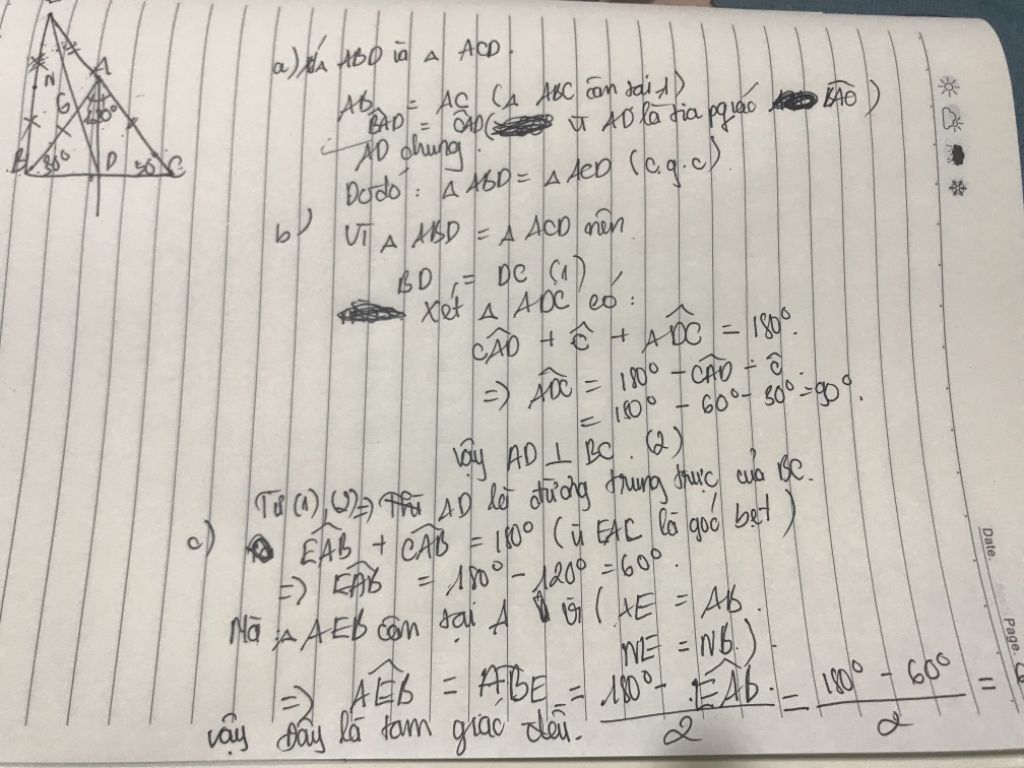 E
N
A
G
60°
B
30°
D
30°
C
a) Xét △ ABD và △ ACD.
AB = AC (△ ABC cân tại A)
BAD = CAD ( vì AD là tia pgiác BAC)
AD chung.
Dođó: △ ABD = △ ACD (c.g.c)
b) Vì △ ABD = △ ACD nên
BD = DC (1)
Xét △ ADC có:
CAD + C + ADC = 180°.
=> ADC = 180° - CAD - C
= 180° - 60° - 30° = 90°.
Vậy AD ⊥ BC. (2)
Từ (1), (2) => AD là đường trung trực của BC.
c) EAB + CAB = 180° (vì EAC là góc bẹt)
=> EAB = 180° - 120° = 60°.
Mà △ AEB cân tại A vì ( AE = AB.
NE = NB.)
=> AEB = ABE = 180° - EAB / 2 = 180° - 60° / 2 =
Vậy đây là tam giác đều.
Date.
Page.